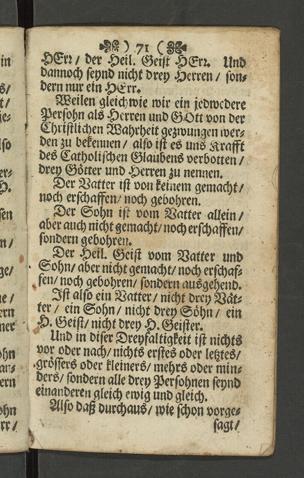 ) 71 (
HErr / der Heil. Geist HErr. Und
dannoch seynd nicht drey Herren / son-
dern nur ein HErr.
Weilen gleich wie wir ein jedwedere
Persohn als Herren und GOtt von der
Christlichen Wahrheit gezwungen wer-
den zu bekennen / also ist es uns Krafft
des Catholischen Glaubens verbotten /
drey Götter und Herren zu nennen.
Der Vatter ist von keinem gemacht /
noch erschaffen / noch gebohren.
Der Sohn ist vom Vatter allein /
aber auch nicht gemacht / noch erschaffen /
sondern gebohren.
Der Heil. Geist vom Vatter und
Sohn / aber nicht gemacht / noch erschaf-
fen / noch gebohren / sondern ausgehend.
Ist also ein Vatter / nicht drey Vät-
ter / ein Sohn / nicht drey Söhn / ein
H. Geist / nicht drey H. Geister.
Und in diser Dreyfaltigkeit ist nichts
vor oder nach / nichts erstes oder letztes /
grössers oder kleiners / mehrs oder min-
ders / sondern alle drey Persohnen seynd
einanderen gleich ewig und gleich.
Also daß durchaus / wie schon vorge-
sagt /